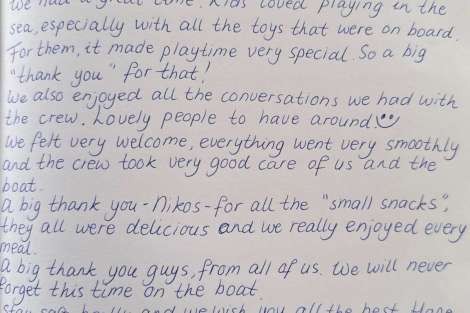 We had a great time. Kids loved playing in the
sea, especially with all the toys that were on board.
For them, it made playtime very special. So a big
"thank you" for that!
We also enjoyed all the conversations we had with
the crew. Lovely people to have around ☺
We felt very welcome, everything went very smoothly
and the crew took very good care of us and the
boat.
A big thank you - Nikos - for all the "small snacks",
they all were delicious and we really enjoyed every
meal.
A big thank you guys, from all of us. We will never
forget this time on the boat.
Stay safe and we wish you all the best. Hope